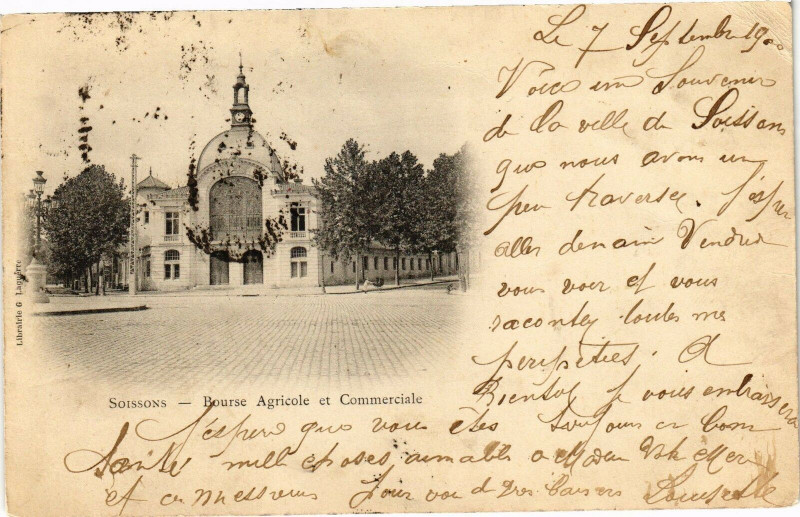 Le 7 Septembre 1900
Voici un Souvenir
de la ville de Soissons
que nous avons un
peu traversée. J'espère
aller demain Vendredi
vous voir et vous
raconter toutes mes
peripeties. A
Bientot je vous embrassera
J'espère que vous êtes toujours en bonne
Santé mille choses aimables a
et ces Messieurs Pour vous de gros baisers
Librairie G
SOISSONS — Bourse Agricole et Commerciale